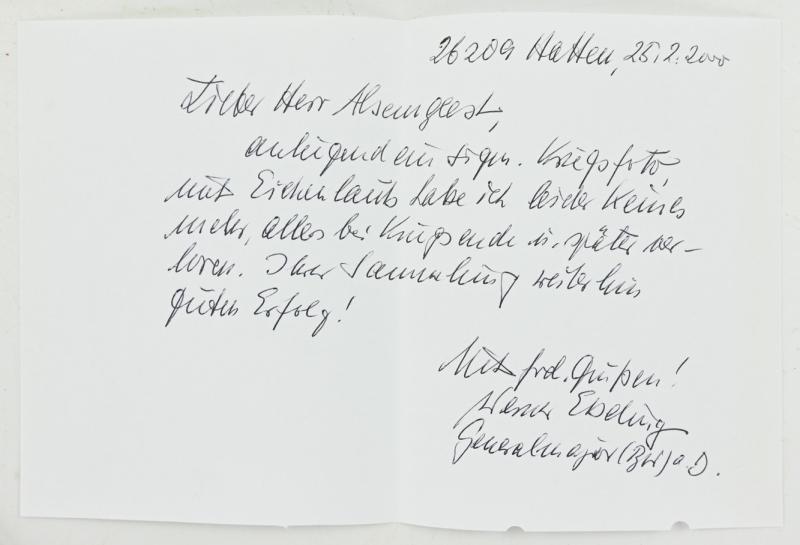 26209 Hatten, 25.2.2000
Lieber Herr Alsemgeest,
anliegend ein sign. Kriegsfoto,
mit Eichenlaub habe ich leider keines
mehr, alles bei Kriegsende u. später ver-
loren. Ihrer Sammlung weiterhin
guten Erfolg!
Mit frdl. Grüßen!
Werner Ebeling
Generalmajor (Bw) a.D.